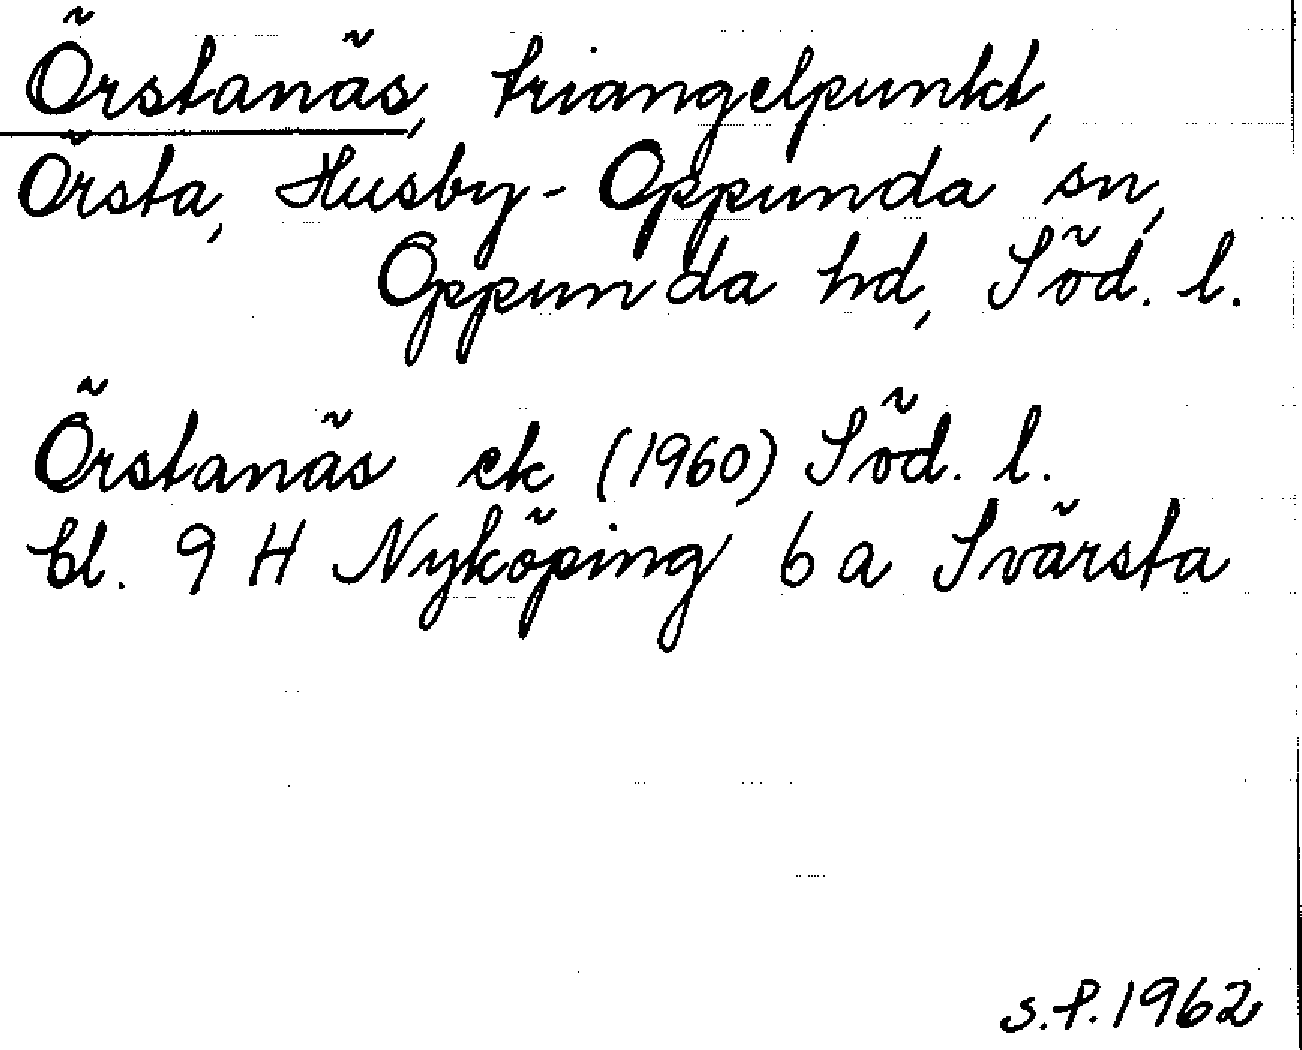 Örstanäs, triangelpunkt,
Örsta, Husby-Oppunda sn,
Oppunda hd, Söd. l.
Örstanäs ek (1960) Söd. l.
bl. 9 H Nyköping 6 a Svärsta
s.f. 1962